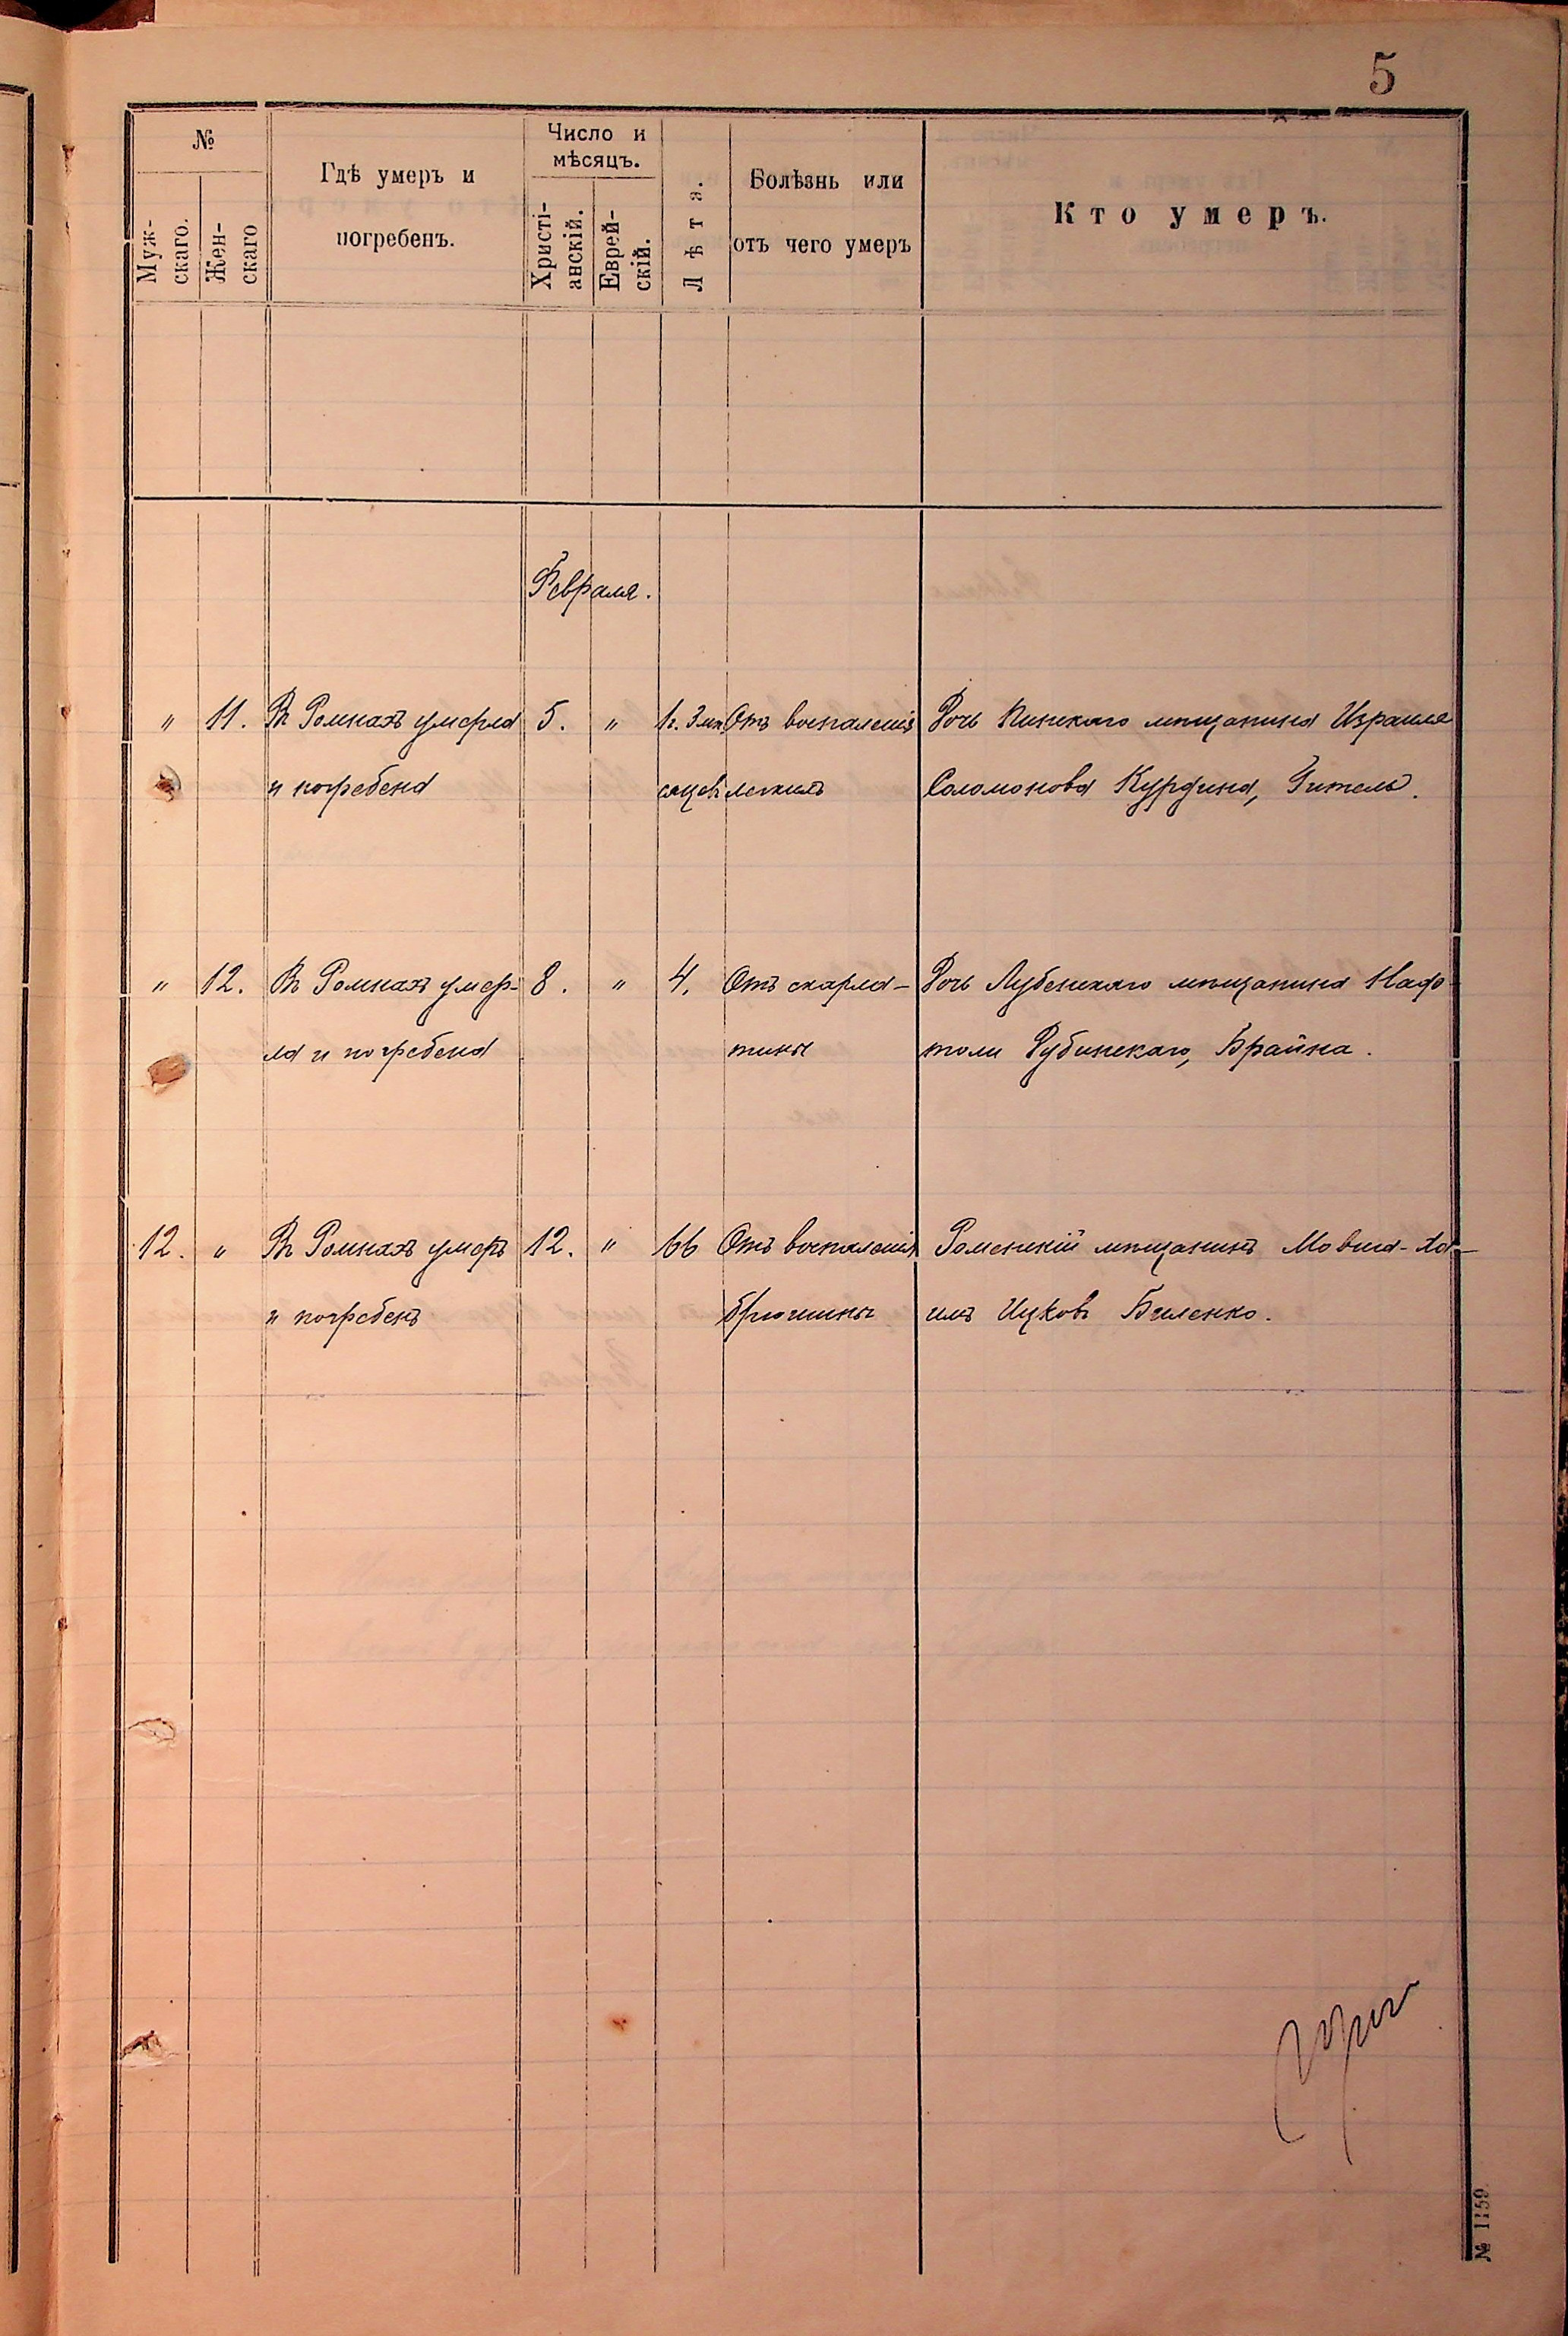 5
№
Муж-
скаго.
Жен-
скаго
Гдѣ умеръ и
погребенъ.
Число и
мѣсяцъ.
Христі-
анскій.
Еврей-
скій.
Лѣта.
Болѣзнь или
отъ чего умеръ
Кто умеръ.
Февраля.
" 11. Въ Ромнахъ умерла 5. " 1г. 3 мѣ Отъ воспаленія Дочь Пинскаго мѣщанина Израиля
и погребена сяцев легкихъ Соломонова Курдина, Гитель.
" 12. Въ Ромнахъ умер- 8. " 4. Отъ скарла- Дочь Лубенскаго мѣщанина Нафо-
ла и погребена тины толи Рубинскаго, Брайна.
12. " Въ Ромнахъ умеръ 12. " 66 Отъ воспаленія Роменскій мѣщанинъ Мовша-Ха-
и погребенъ брюшины имъ Ицковъ Биленко.
№ 1159.